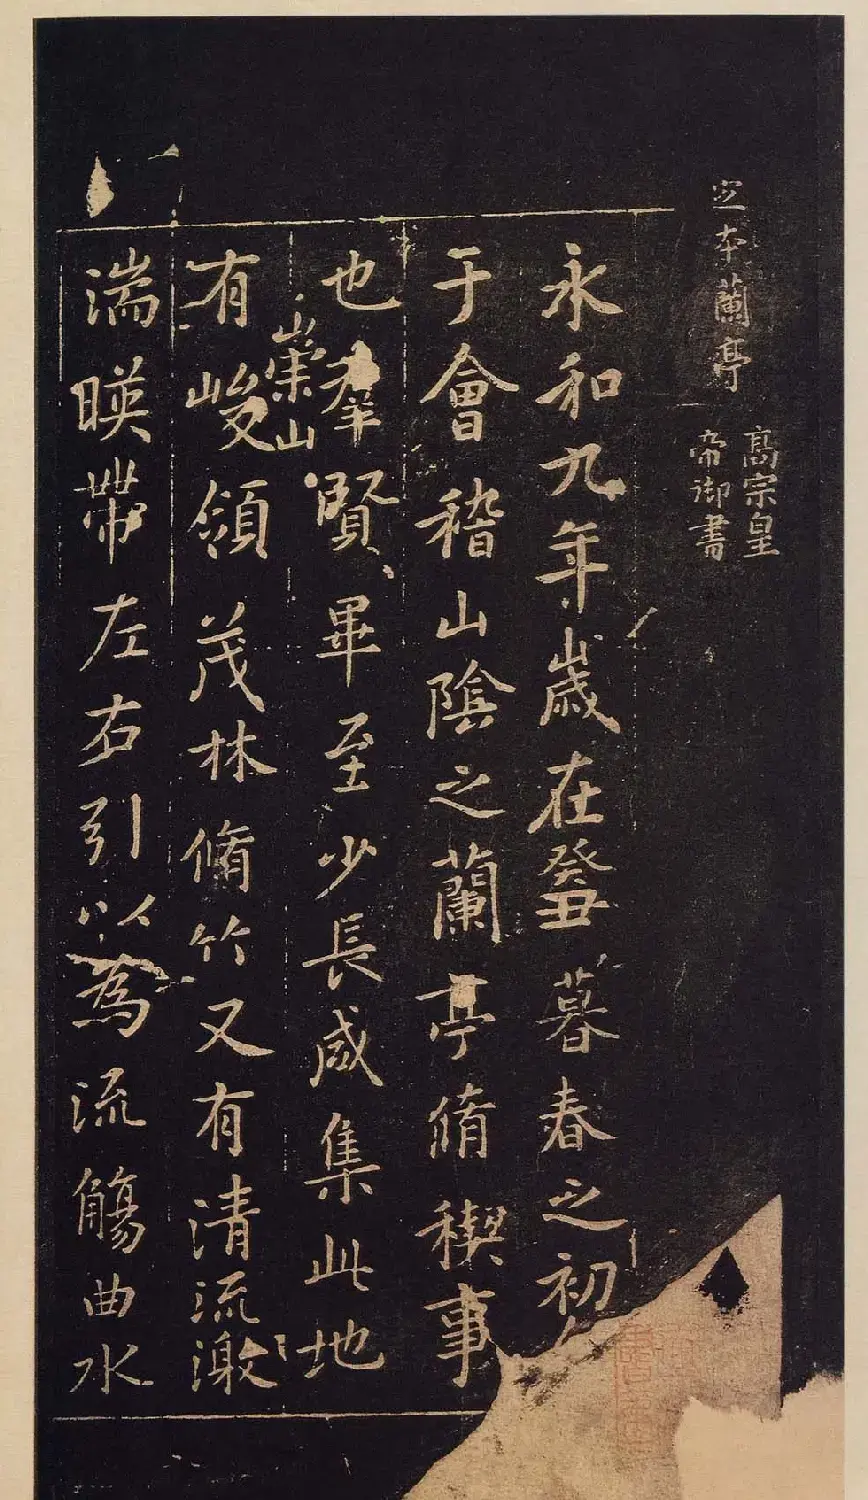 㝎夲蘭亭
高宗皇
帝御書
永和九年歲在癸丑暮春之初
于會稽山陰之蘭亭脩稧事
也羣賢畢至少長咸集此地
崇山
有峻領茂林脩竹又有清流激
湍暎帶左右引以為流觴曲水